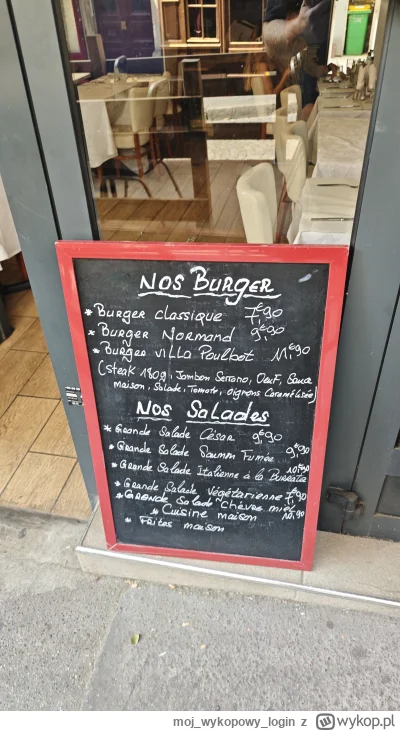 NOS BURGER
* BURGER classique 7,€90
* BURGER NORMAND 9,€90
* BURGER villa Poulbot 11,€90
(steak 180g, Jambon Serrano, Oeuf, Sauce
Maison, Salade, Tomate, oignons Caramélisée)
Nos Salades
* GRANDE Salade César 9,€90
* GRANDE Salade Saumon Fumée 9,€90
* GRANDE Salade Italienne à la Burrata 10,€90
* GRANDE Salade Végétarienne 7,€90
* GRANDE Salade Chèvre miel 11,90
* Cuisine maison
* Frites maison
moj_wykopowy_login z wykop.pl